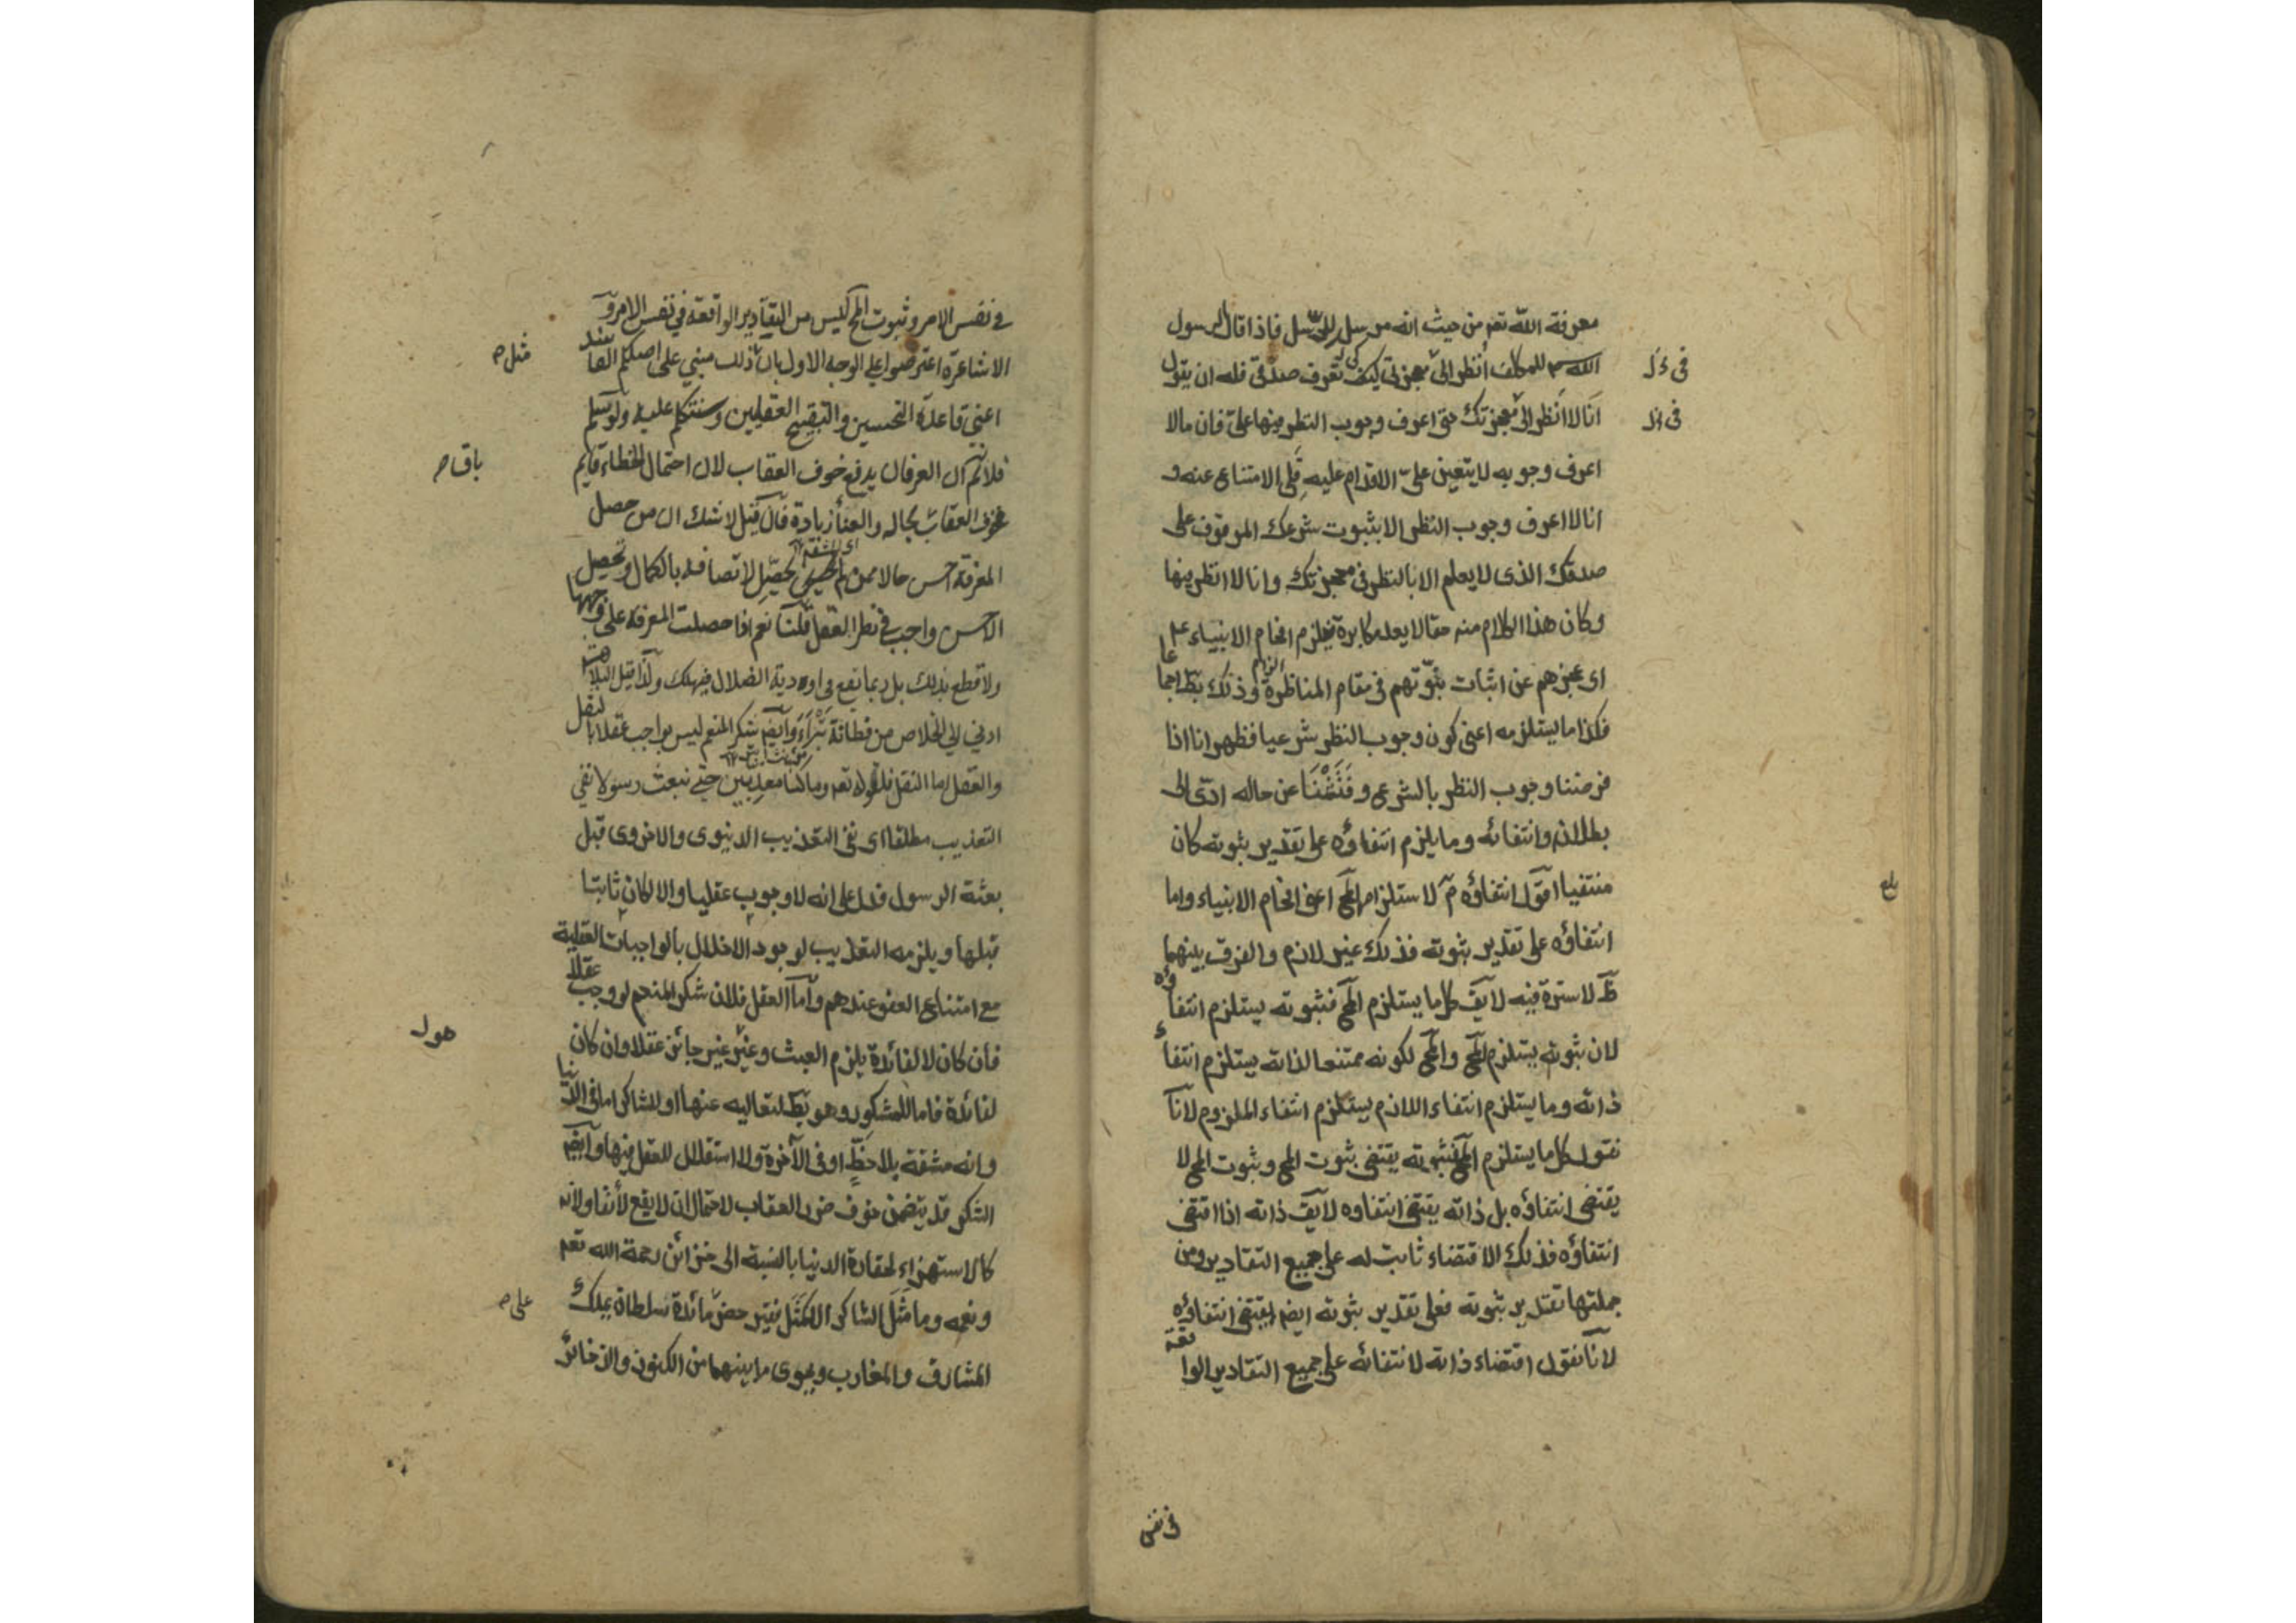 معرفة الله تعم من حيث انه مرسل للرسل فاذا قال الرسول
الله للمكلف أنظر الى معجزتي كي تعرف صدقى فله ان يقول
انا لا انظر الى معجزتك حتى اعرف وجوب النظر فيها علىّ فان مالا
اعرف وجوبه لا يتعين علىّ الاقدام عليه فلى الامتناع عنه و
انا لا اعرف وجوب النظر الا بثبوت شرعك الموقوف على
صدقك الذى لا يعلم الا بالنظر فى معجزتك وانا لا انظر فيها
وكان هذا الكلام منه حقا لا يعد مكابرة فيلزم افحام الانبياء عم
اى عجزهم عن اثبات نبوّتهم فى مقام المناظرة وذلك بط اجماعا
فكذا ما يستلزمه اعنى كون وجوب النظر شرعيا فظهر انا اذا
فرضنا وجوب النظر بالشرع وفتشنا عن حاله ادّى الى
بطلانه وانتفائه وما يلزم انتفاؤه على تقدير ثبوته كان
منتفيا اقول انتفاؤه م لاستلزامه المح اعنى افحام الانبياء واما
انتفاؤه على تقدير ثبوته فذلك غير لازم والفرق بينهما
ظ لا سترة فيه لا يق كل ما يستلزم المح فثبوته يستلزم انتفاؤه
لان ثبوته يستلزم المح والمح لكونه ممتنعا لذاته يستلزم انتفاء
ذاته وما يستلزم انتفاء اللازم يستلزم انتفاء الملزوم لانا
نقول كل ما يستلزم المح فثبوته يقتضى ثبوت المح وثبوت المح لا
يقتضى انتفاؤه بل ذاته يقتضى انتفاوه لا يق ذاته اذا اقتضى
انتفاؤه فذلك الاقتضاء ثابت له على جميع التقادير ومن
جملتها تقدير ثبوته فعلى تقدير ثبوته ايضم يقتضى انتفاؤه
لانا نقول اقتضاء ذاته لانتفائه على جميع التقادير الواقعة
فى نفس
فى نفس الامر وثبوت المح ليس من التقادير الواقعة فى نفس الامر و
الاشاعرة اعترضوا على الوجه الاول بان ذلك مبنى على اصلكم الفاسد
اعنى قاعدة التحسين والتقبيح العقليين وسنتكلم عليه ولو سلم
فلانم ان العرفان يدفع خوف العقاب لان احتمال الخطاء قايم
فخوف العقاب بحاله والعنأ زيادة فان قيل لا شك ان من حصل
المعرفة احسن حالا ممن لم يحصل لاتصافه بالكمال وتحصيل
الاحسن واجب فى نظر العقل قلنا نعم اذا حصلت المعرفة على وجهها
ولا قطع بذلك بل ربما يقع فى اودية الضلال فيهلك ولذا قيل البلاهة
ادنى الى الخلاص من فطانة بتراء وايضم شكر المنعم ليس بواجب عقلا بالنقل
والعقل اما النقل فلقوله تعم وما كنا معذبين حتى نبعث رسولا نفى
التعذيب مطلقا اى نفى التعذيب الدنيوى والاخروى قبل
بعثة الرسول فدل على انه لا وجوب عقليا والا لكان ثابتا
قبلها ويلزمه التعذيب لوجود الاخلال بالواجبات العقلية
مع امتناع العفو عندهم وأما العقل فلان شكر المنعم لو وجب عقلا
فان كان لا لفائدة يلزم العبث وغير جائز عقلا وان كان
لفائدة فاما للمشكور وهو بط لتعاليه عنها او للشاكر اما فى الدنيا
وانه مشقة بلا حظّ او فى الآخرة ولا استقلال للعقل فيها وايضم
الشكر قد يتضمن خوف ضرر العقاب لاحتمال ان لا يقع لائقا ولانه
كالاستهزاء لحقارة الدنيا بالنسبة الى خزائن رحمة الله تعم
ونعمه وما مثل الشاكر الا كمثل فقير حضر مائدة سلطان يملك
المشارق والمغارب ويحوى ما بينهما من الكنوز والذخائر